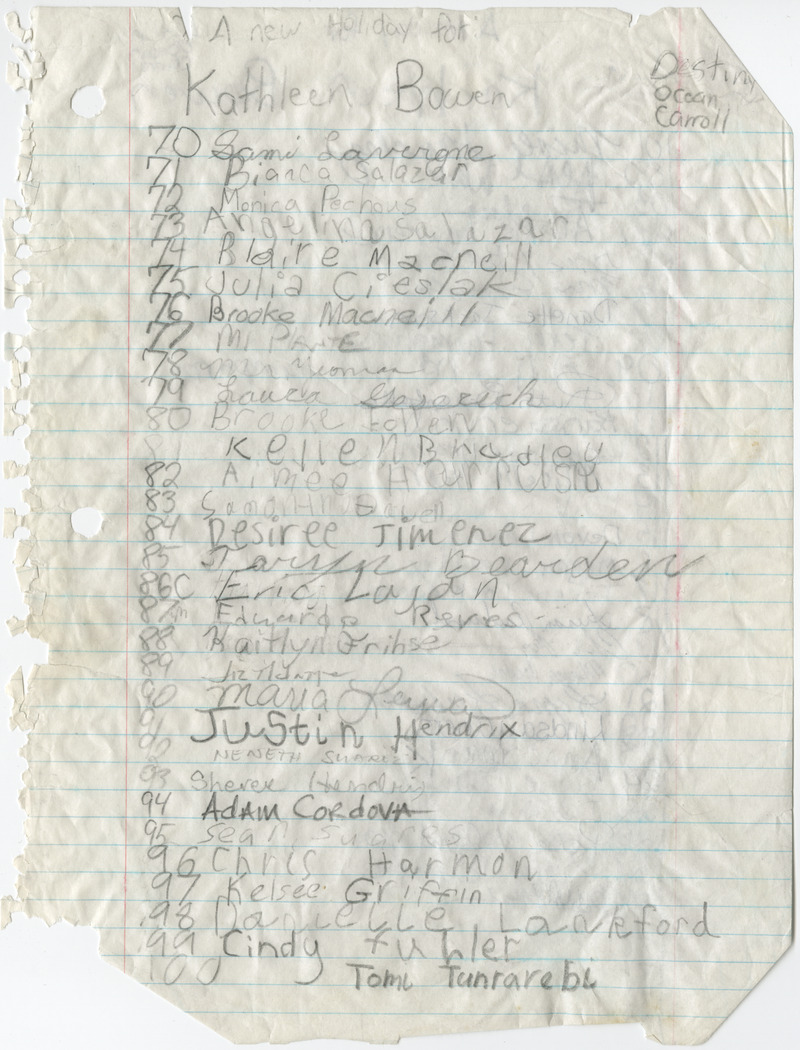 A new Holiday for:
Kathleen Bowen
Destiny
Ocean
Carroll
70 Sami Lavergne
71 Bianca Salazar
72 Monica Pechous
73 Angelina Salazar
74 Blaire Macneill
75 Julia Cieslak
76 Brooke Macneill
77 Mi
78
79 Laura
80 Brooke
Kellen Bradley
82 Aimee
83
84 Desiree Jimenez
85 Taryn Bearden
86 Eric Lajan
87 Eduardo Reyes
88 Kaitlyn Frihse
89
90 Maria
91 Justin Hendrix
NENETH
93 Sheree Hendrix
94 ADAM CORDOVA
95 Sean Suares
96 Chris Harmon
97 Kelsee Griffin
98 Danielle Lankford
99 Cindy Fuhler
100 Tomi Tunrarebi